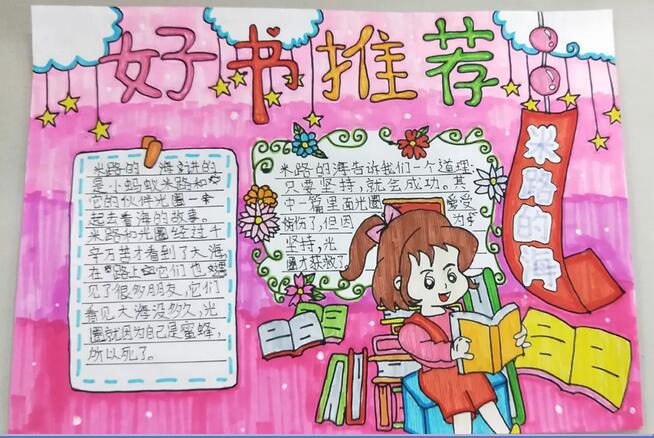 好书推荐
米路的海
米路的 海讲的
是小蚂蚁米路和
它的伙伴光圈一
起去看海的故事。
米路和光圈经过千
辛万苦才看到了大海,
在路上它们也遇
见了很多朋友,它们
看见大海没多久,光
圈就因为自己是蜜蜂,
所以死了。
米路的海告诉我们一个道理:
只要坚持,就会成功。其
中一篇里面光圈
伤了,但因 为
坚持,光
圈才获救了